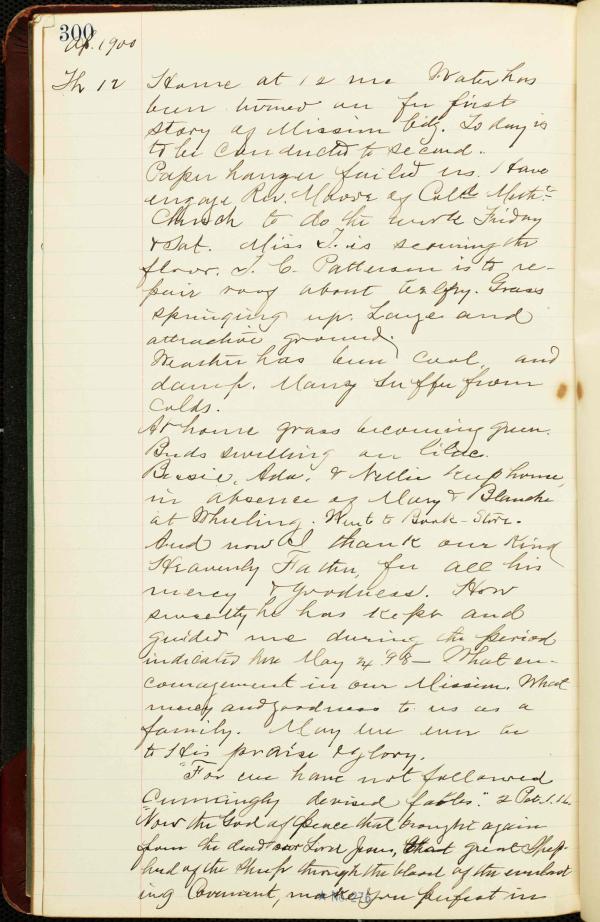 300
Ap. 1900
Th 12 Home at 12 m. Water has
been turned on for first
story of Mission bdg. To day is
to be conducted to second.
Paper hanger failed us. Have
engage Rev. Moore of Cold Meth.
Church to do the work Friday
& Sat. Miss T. is scouring the
floor. T. C. Patterson is to re-
pair roof about belfry. Grass
springing up. Large and
attractive ground.
Weather has been cool, and
damp. Many suffer from
Colds.
At home grass becoming green.
Buds swelling on lilac.
Bessie, Ada, & Nellie keep house,
in absence of Mary & Blanche
at Wheeling. Went to Book-Store.
And now I thank our Kind
Heavenly Father, for all his
mercy & goodness. How
sweetly he has kept and
guided me during the period
indicated here May 24 '98 — What en-
couragement in our Mission. What
mercy and goodness to us as a
family. May we ever be
to His praise & glory.
"For we have not followed
cunningly devised fables." 2 Pet. 1.16
"Now the God of peace that brought again
from the dead our Lord Jesus, that great Shep-
herd of the sheep through the blood of the everlast
ing Covenant, make you perfect in